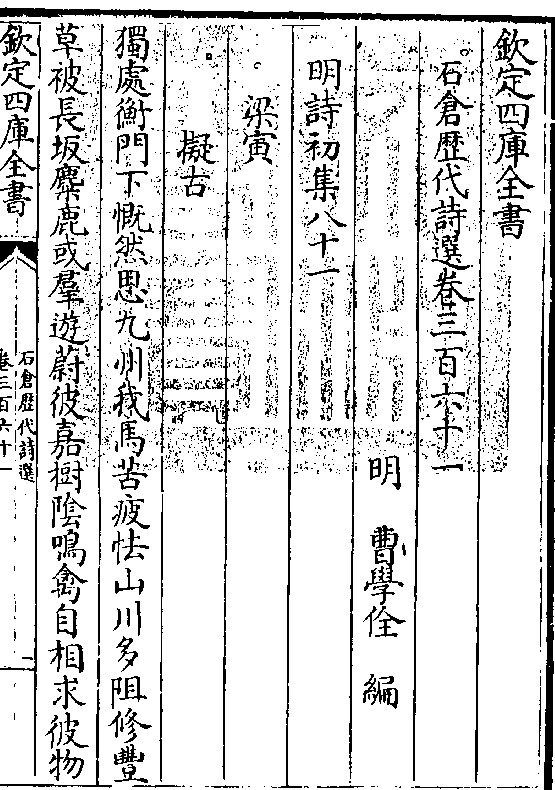 欽定四庫全書
石倉歴代詩選卷三百六十一
明 曹學佺 編
明詩初集八十一
梁寅
擬古
獨處衡門下慨然思九州我馬苦疲怯山川多阻修豐
草被長坂麋鹿或羣遊蔚彼嘉樹陰鳴禽自相求彼物
欽定四庫全書
石倉歴代詩選
卷三百六十一
一